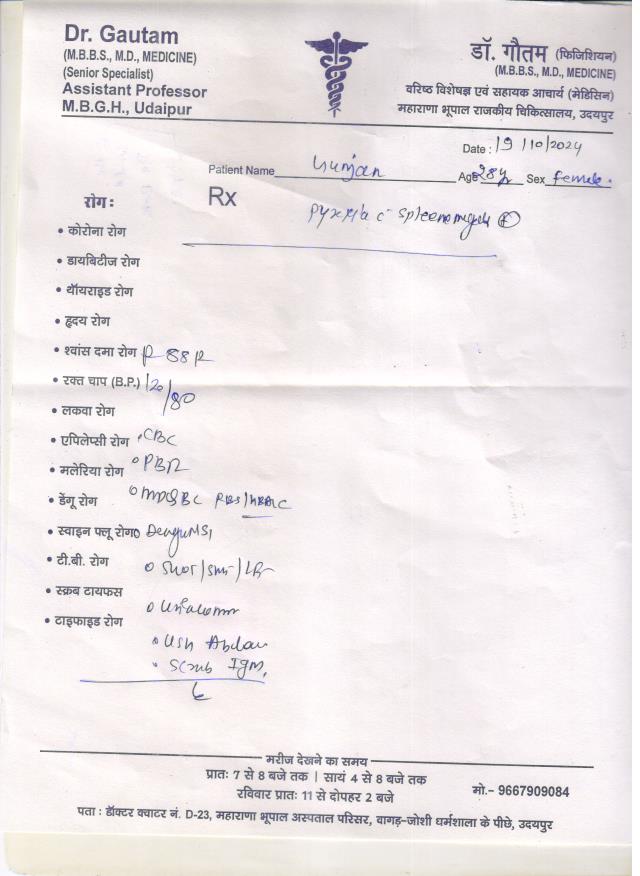 Dr. Gautam
(M.B.B.S., M.D., MEDICINE)
(Senior Specialist)
Assistant Professor
M.B.G.H., Udaipur
डॉ. गौतम (फिजिशियन)
(M.B.B.S., M.D., MEDICINE)
वरिष्ठ विशेषज्ञ एवं सहायक आचार्य (मेडिसिन)
महाराणा भूपाल राजकीय चिकित्सालय, उदयपुर
Date : 19/10/2024
Patient Name Gunjan Age 28y Sex female.
Rx
c̄ spleenomegaly
रोग :
• कोरोना रोग
• डायबिटीज रोग
• थॉयराइड रोग
• हृदय रोग
• श्वांस दमा रोग P 88
• रक्त चाप (B.P.) 120/80
• लकवा रोग
• एपिलेप्सी रोग CBC
• मलेरिया रोग
• डेंगू रोग RBS/
• स्वाइन फ्लू रोग
• टी.बी. रोग
• स्क्रब टायफस
• टाइफाइड रोग
• Scrub IgM,
मरीज देखने का समय
प्रातः 7 से 8 बजे तक | सायं 4 से 8 बजे तक
रविवार प्रातः 11 से दोपहर 2 बजे
मो.- 9667909084
पता : डॉक्टर क्वाटर नं. D-23, महाराणा भूपाल अस्पताल परिसर, वागड़-जोशी धर्मशाला के पीछे, उदयपुर